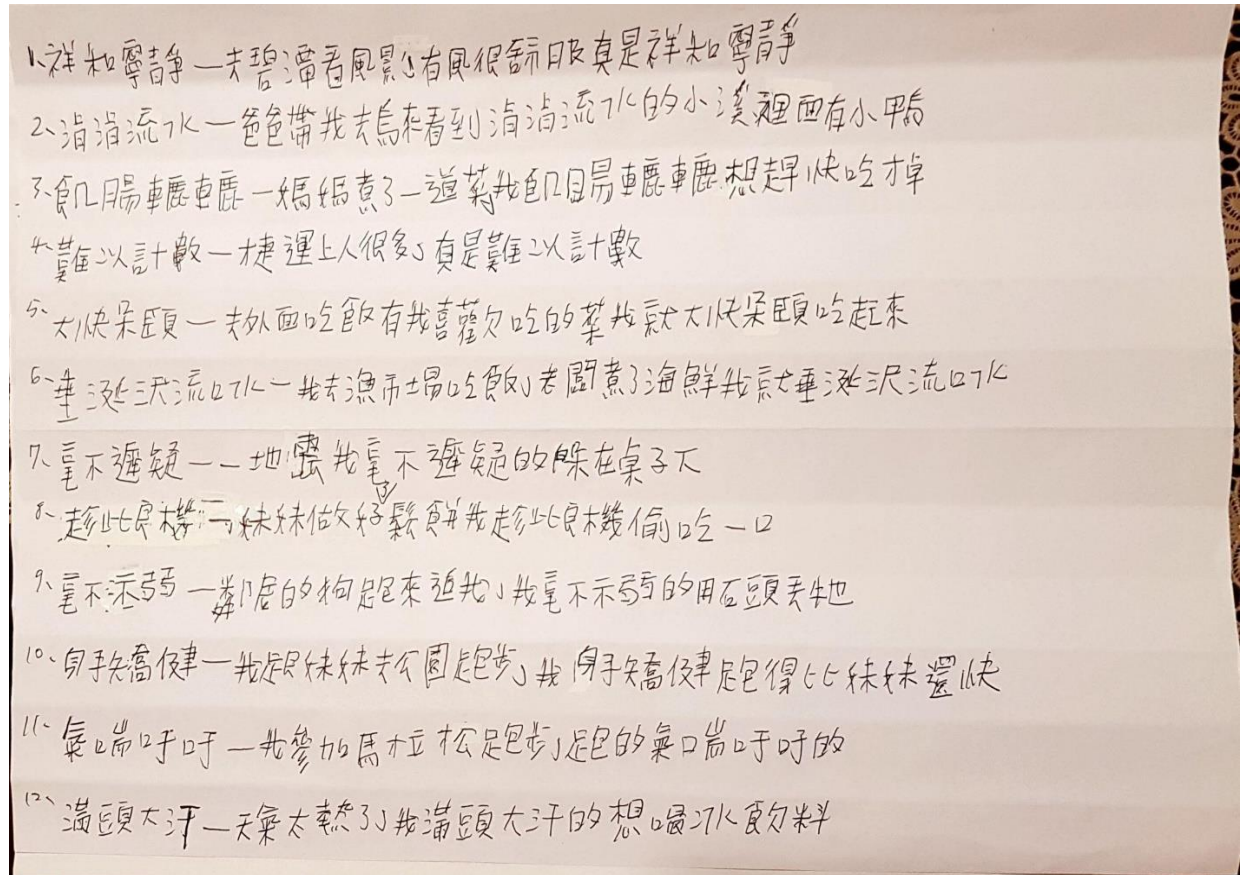 1、祥和寧靜—去碧潭看風景，有風很舒服真是祥和寧靜
2、涓涓流水—爸爸帶我去烏來看到涓涓流水的小溪裡面有小鴨
3、飢腸轆轆—媽媽煮了一道菜我飢腸轆轆想趕快吃掉
4、難以計數—捷運上人很多，真是難以計數
5、大快朵頤—去外面吃飯有我喜歡吃的菜我就大快朵頤吃起來
6、垂涎流口水—我去漁市場吃飯，老闆煮了海鮮我就垂涎流口水
7、毫不遲疑—一地震我毫不遲疑的躲在桌子下
8、趁此良機—妹妹做好了鬆餅我趁此良機偷吃一口
9、毫不示弱—鄰居的狗跑來追我，我毫不示弱的用石頭丟牠
10、身手矯健—我跟妹妹去公園跑步，我身手矯健跑得比妹妹還快
11、氣喘吁吁—我參加馬拉松跑步，跑的氣喘吁吁的
12、滿頭大汗—天氣太熱了，我滿頭大汗的想喝冰飲料